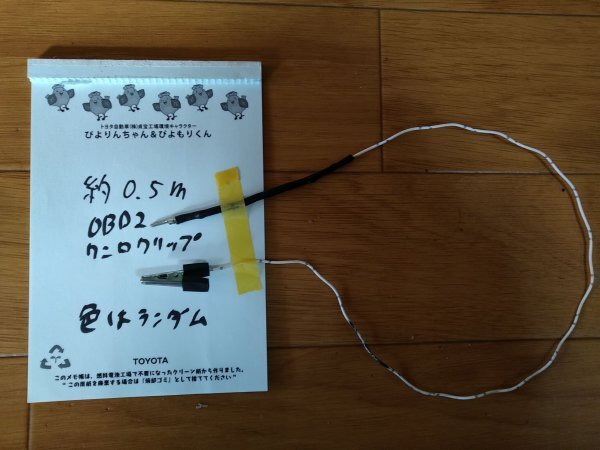 トヨタ自動車(株)貞宝工場環境キャラクター
ぴよりんちゃん&ぴよもりくん
約0.5m
OBD2
ワニ口クリップ
色はランダム
TOYOTA
このメモ帳は、燃料電池工場で不要になったクリーン紙から作りました。
"この用紙を廃棄する場合は「焼却ゴミ」として捨ててください"